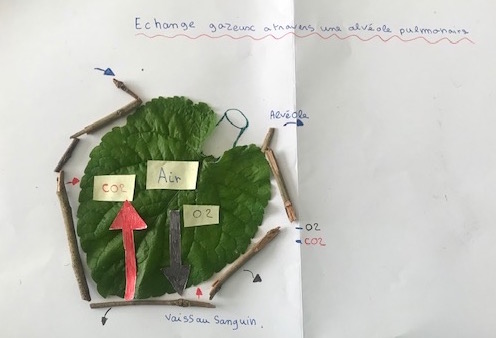 Echange gazeux atravers une alvéole pulmonaire
Alvéole
CO2
Air
O2
- O2
- CO2
Vaissau Sanguin.